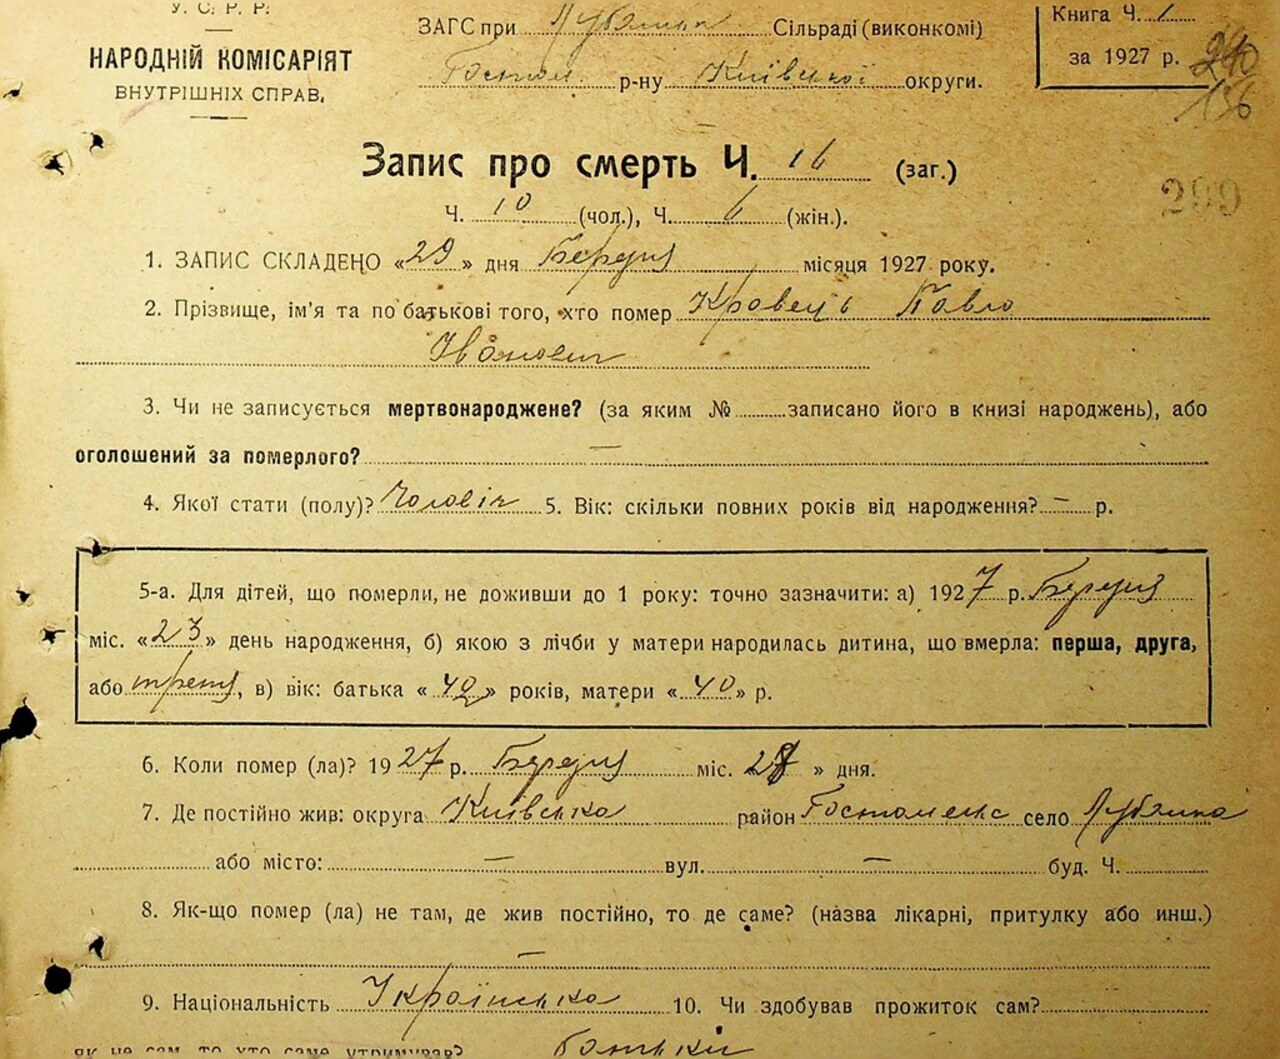 У. С. Р. Р.
НАРОДНІЙ КОМІСАРІЯТ
ВНУТРІШНІХ СПРАВ.
ЗАГС при Лубянка Сільраді (виконкомі)
Гостом. р-ну Київської округи.
Книга Ч. 1
за 1927 р.
240
156
Запис про смерть Ч. 16 (заг.)
299
Ч. 10 (чол.), Ч. 6 (жін.).
1. ЗАПИС СКЛАДЕНО «29» дня Березня місяця 1927 року.
2. Прізвище, ім'я та по батькові того, хто помер Кравець Павло
Іванович
3. Чи не записується мертвонароджене? (за яким № записано його в книзі народжень), або
оголошений за померлого? —
4. Якої стати (полу)? Чоловіч 5. Вік: скільки повних років від народження? — р.
5-а. Для дітей, що померли, не доживши до 1 року: точно зазначити: а) 1927 р. Березня
міс. «23» день народження, б) якою з лічби у матери народилась дитина, що вмерла: перша, друга,
або третя, в) вік: батька «42» років, матери «40» р.
6. Коли помер (ла)? 1927 р. Березня міс. 28 » дня.
7. Де постійно жив: округа Київська район Гостомельс село Лубянка
або місто: — вул. — буд. Ч.
8. Як-що помер (ла) не там, де жив постійно, то де саме? (назва лікарні, притулку або инш.)
—
9. Національність Українська 10. Чи здобував прожиток сам?
як не сам, то хто саме утримував? Батьки